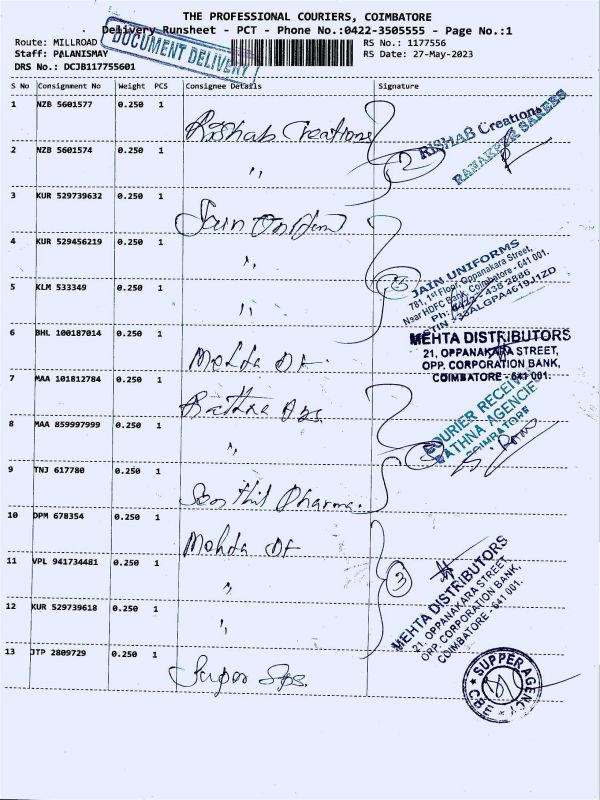 THE PROFESSIONAL COURIERS, COIMBATORE
Delivery Runsheet - PCT - Phone No.:0422-3505555 - Page No.:1
Route: MILLROAD
Staff: PALANISMAY
DRS No.: DCJB117755601
DOCUMENT DELIVERY
RS No.: 1177556
RS Date: 27-May-2023
S No Consignment No Weight PCS Consignee Details Signature
1 NZB 5601577 0.250 1 Rishab Creations
RISHAB Creations
RANAKPUR SAREES
2 NZB 5601574 0.250 1 ,,
2
3 KUR 529739632 0.250 1 Jain Uniform
4 KUR 529456219 0.250 1 ,,
JAIN UNIFORMS
781, 1st Floor, Oppanakara Street,
Near HDFC Bank, Coimbatore - 641 001.
Ph: 0422 - 438 2886
GSTIN : 33ALGPA4619J1ZD
5 KLM 533349 0.250 1 ,,
6 BHL 100187014 0.250 1 Mehta DF
MEHTA DISTRIBUTORS
21, OPPANAKARA STREET,
OPP. CORPORATION BANK,
COIMBATORE - 641 001.
7 MAA 101812784 0.250 1 Rathna
8 MAA 859997999 0.250 1 ,,
COURIER RECEIVED
RATHNA AGENCIES
COIMBATORE
9 TNJ 617780 0.250 1 Senthil Pharma
10 DPM 678354 0.250 1 Mehta DF
11 VPL 941734481 0.250 1 ,,
3
MEHTA DISTRIBUTORS
21, OPPANAKARA STREET,
OPP. CORPORATION BANK,
COIMBATORE - 641 001.
12 KUR 529739618 0.250 1 ,,
13 JTP 2809729 0.250 1 Super
SUPPER AGENCY
CBE